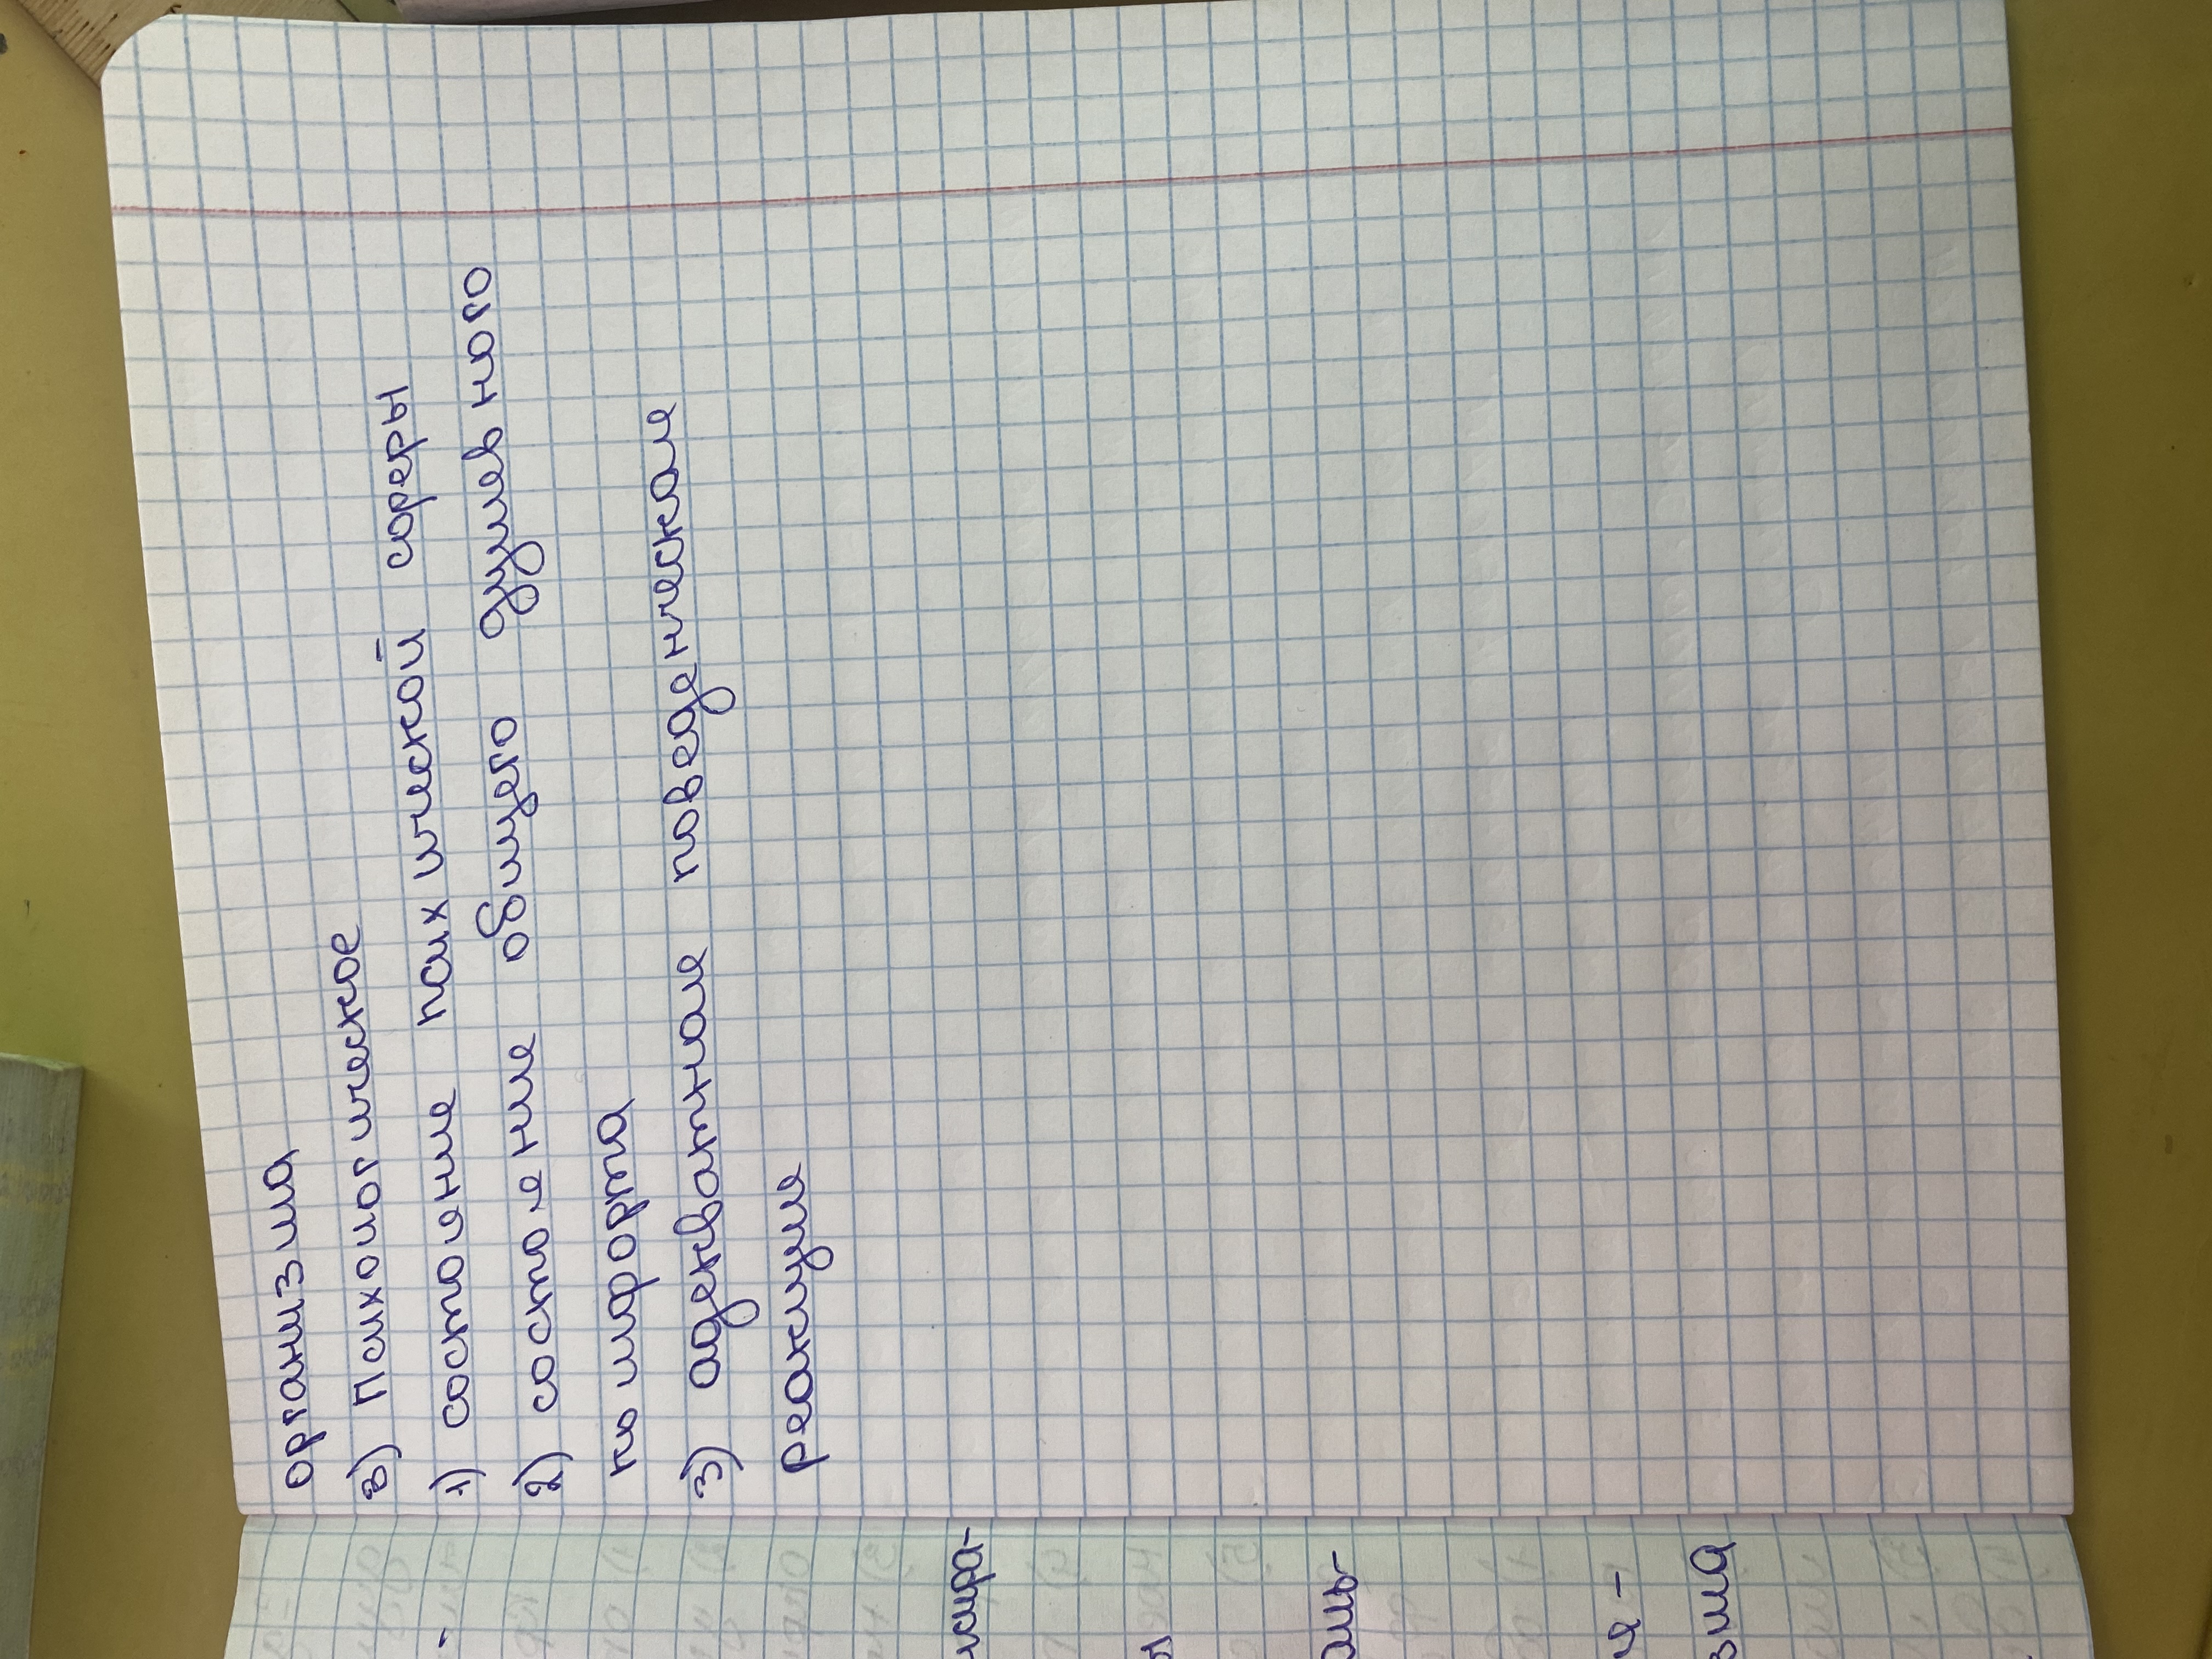 организма
в) Психологическое
1) состояние психической сферы
2) состояние общего душевного
комфорта
3) адекватная поведенческая
реакция